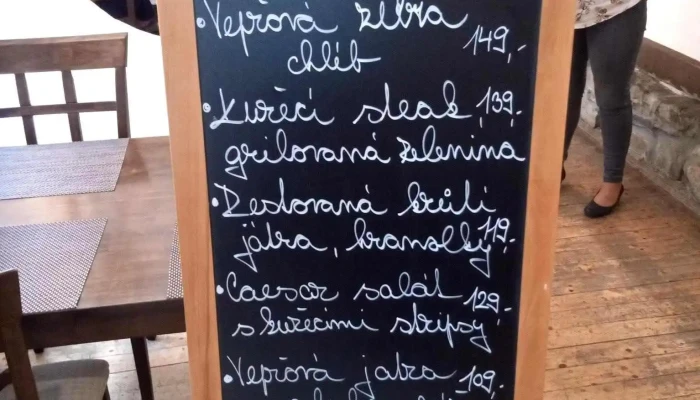 • Vepřová žebra 149,-
chléb
• Kuřecí steak 139,-
grilovaná zelenina
• Restovaná krůtí
játra, hranolky 119,-
• Caesar salát 129,-
s kuřecími stripsy
• Vepřová játra 109,-